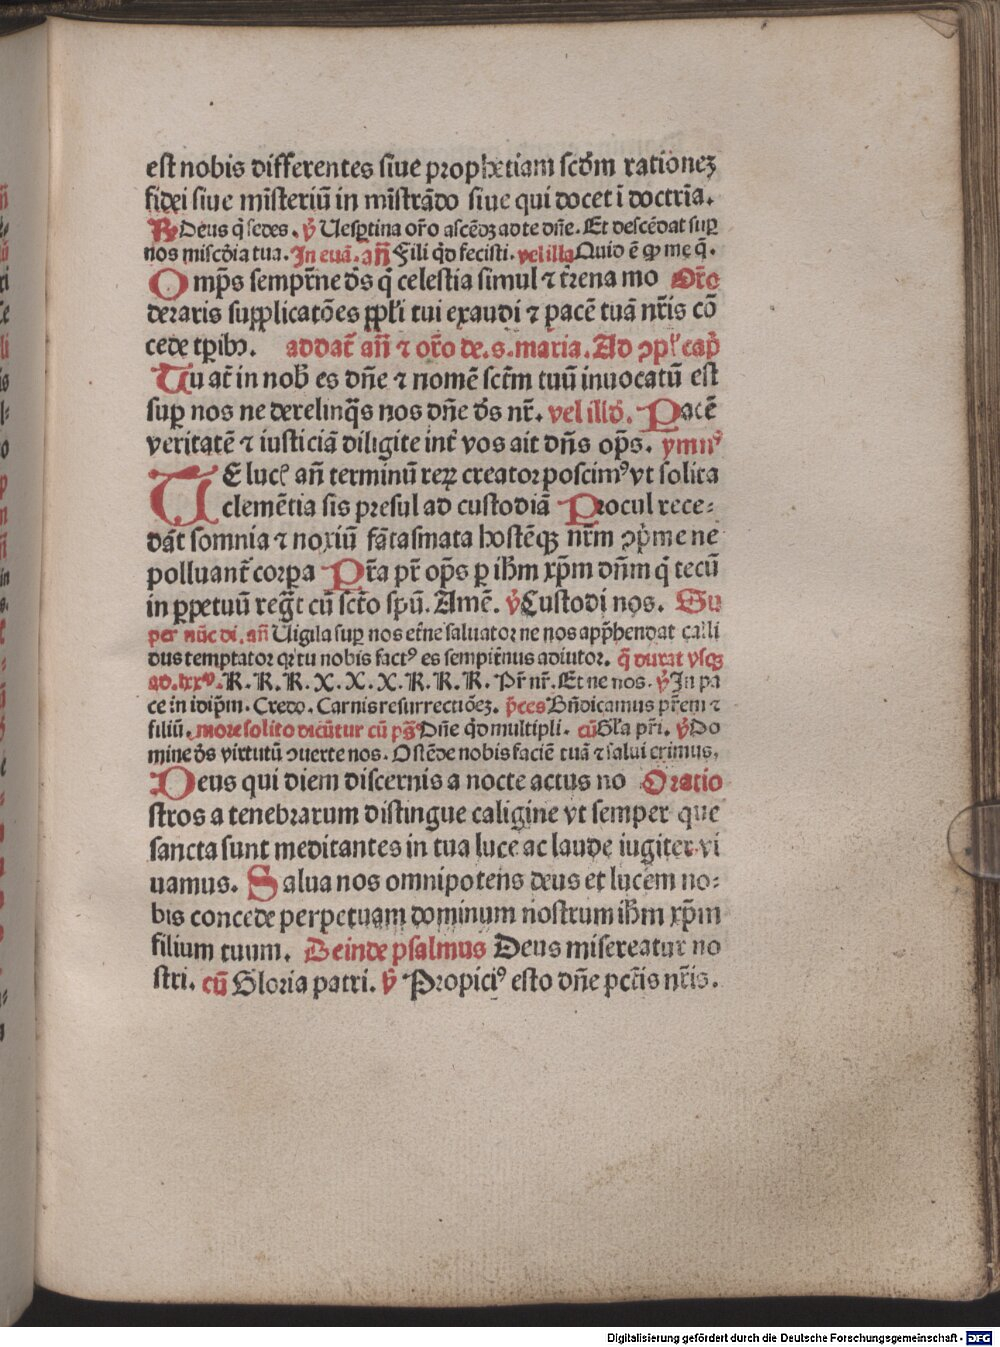 est nobis differentes siue prophetiam scďm rationeʒ
fidei siue mīsteriū in mīstrādo siue qui docet ī doctrīa.
℟ Deus q̄ sedes. ℣ Uesꝑtina or̄o ascēdʒ ad te dn̄e. Et descēdat suꝑ
nos mīsc̄dia tua. In euā. an̄ Fili qd̄ fecisti. vel illa Quid ē ꝙ me q̄.
Omp̄s sempr̄ne ds̄ q̄ celestia simul ⁊ tr̄ena mo Or̄o
deraris supplicatōes ppl̄i tui exaudi ⁊ pacē tuā nr̄is cō
cede tꝑibꝫ. addat̄ an̄ ⁊ or̄o de. s. maria. Ad ꝯpl̄ cap̄
Tu at̄ in nob̄ es dn̄e ⁊ nomē sct̄m tuū inuocatū est
suꝑ nos ne derelinq̄s nos dn̄e ds̄ nr̄. vel illd̄. Pacē
veritatē ⁊ iusticiā diligite int̄ vos ait dn̄s op̄s. ymnꝰ
TE luc̄ an̄ terminū reꝝ creator poscimꝰ vt solita
clemētia sis presul ad custodiā Procul rece⸗
dāt somnia ⁊ noxiū fātasmata hostēqꝫ nr̄m ꝯp̄me ne
polluant̄ corꝑa Pr̄a pr̄ op̄s ꝑ ih̄m xp̄m dn̄m q̄ tecū
in ꝑpetuū regt̄ cū sct̄o spū. Amē. ℣ Custodi nos. Su
per nūc di. an̄ Uigila suꝑ nos etn̄e saluator ne nos app̄hendat calli
dus temptator qr tu nobis factꝰ es sempit̄nus adiutor. q̄ durat vsqꝫ
ad. lxxᵃ. K. K. K. X. X. X. K. K. K. Pr̄ nr̄. Et ne nos. ℣ In pa
ce in idip̄m. Credo. Carnis resurrectiōeʒ. p̄ces Bn̄dicamus pr̄em ⁊
filiū. more solito dicūtur cū ps̄ Dn̄e qd̄ multipli. cū Gl̄a pr̄i. ℣ Do
mine ds̄ virtutū ꝯuerte nos. Ostēde nobis faciē tuā ⁊ salui erimus.
Deus qui diem discernis a nocte actus no Oratio
stros a tenebrarum distingue caligine vt semper que
sancta sunt meditantes in tua luce ac laude iugiter vi
uamus. Salua nos omnipotens deus et lucem no⸗
bis concede perpetuam dominum nostrum ih̄m xp̄m
filium tuum. Deinde psalmus Deus misereatur no
stri. cū Gloria patri. ℣ Propiciꝰ esto dn̄e pct̄is nr̄is.
Digitalisierung gefördert durch die Deutsche Forschungsgemeinschaft - DFG